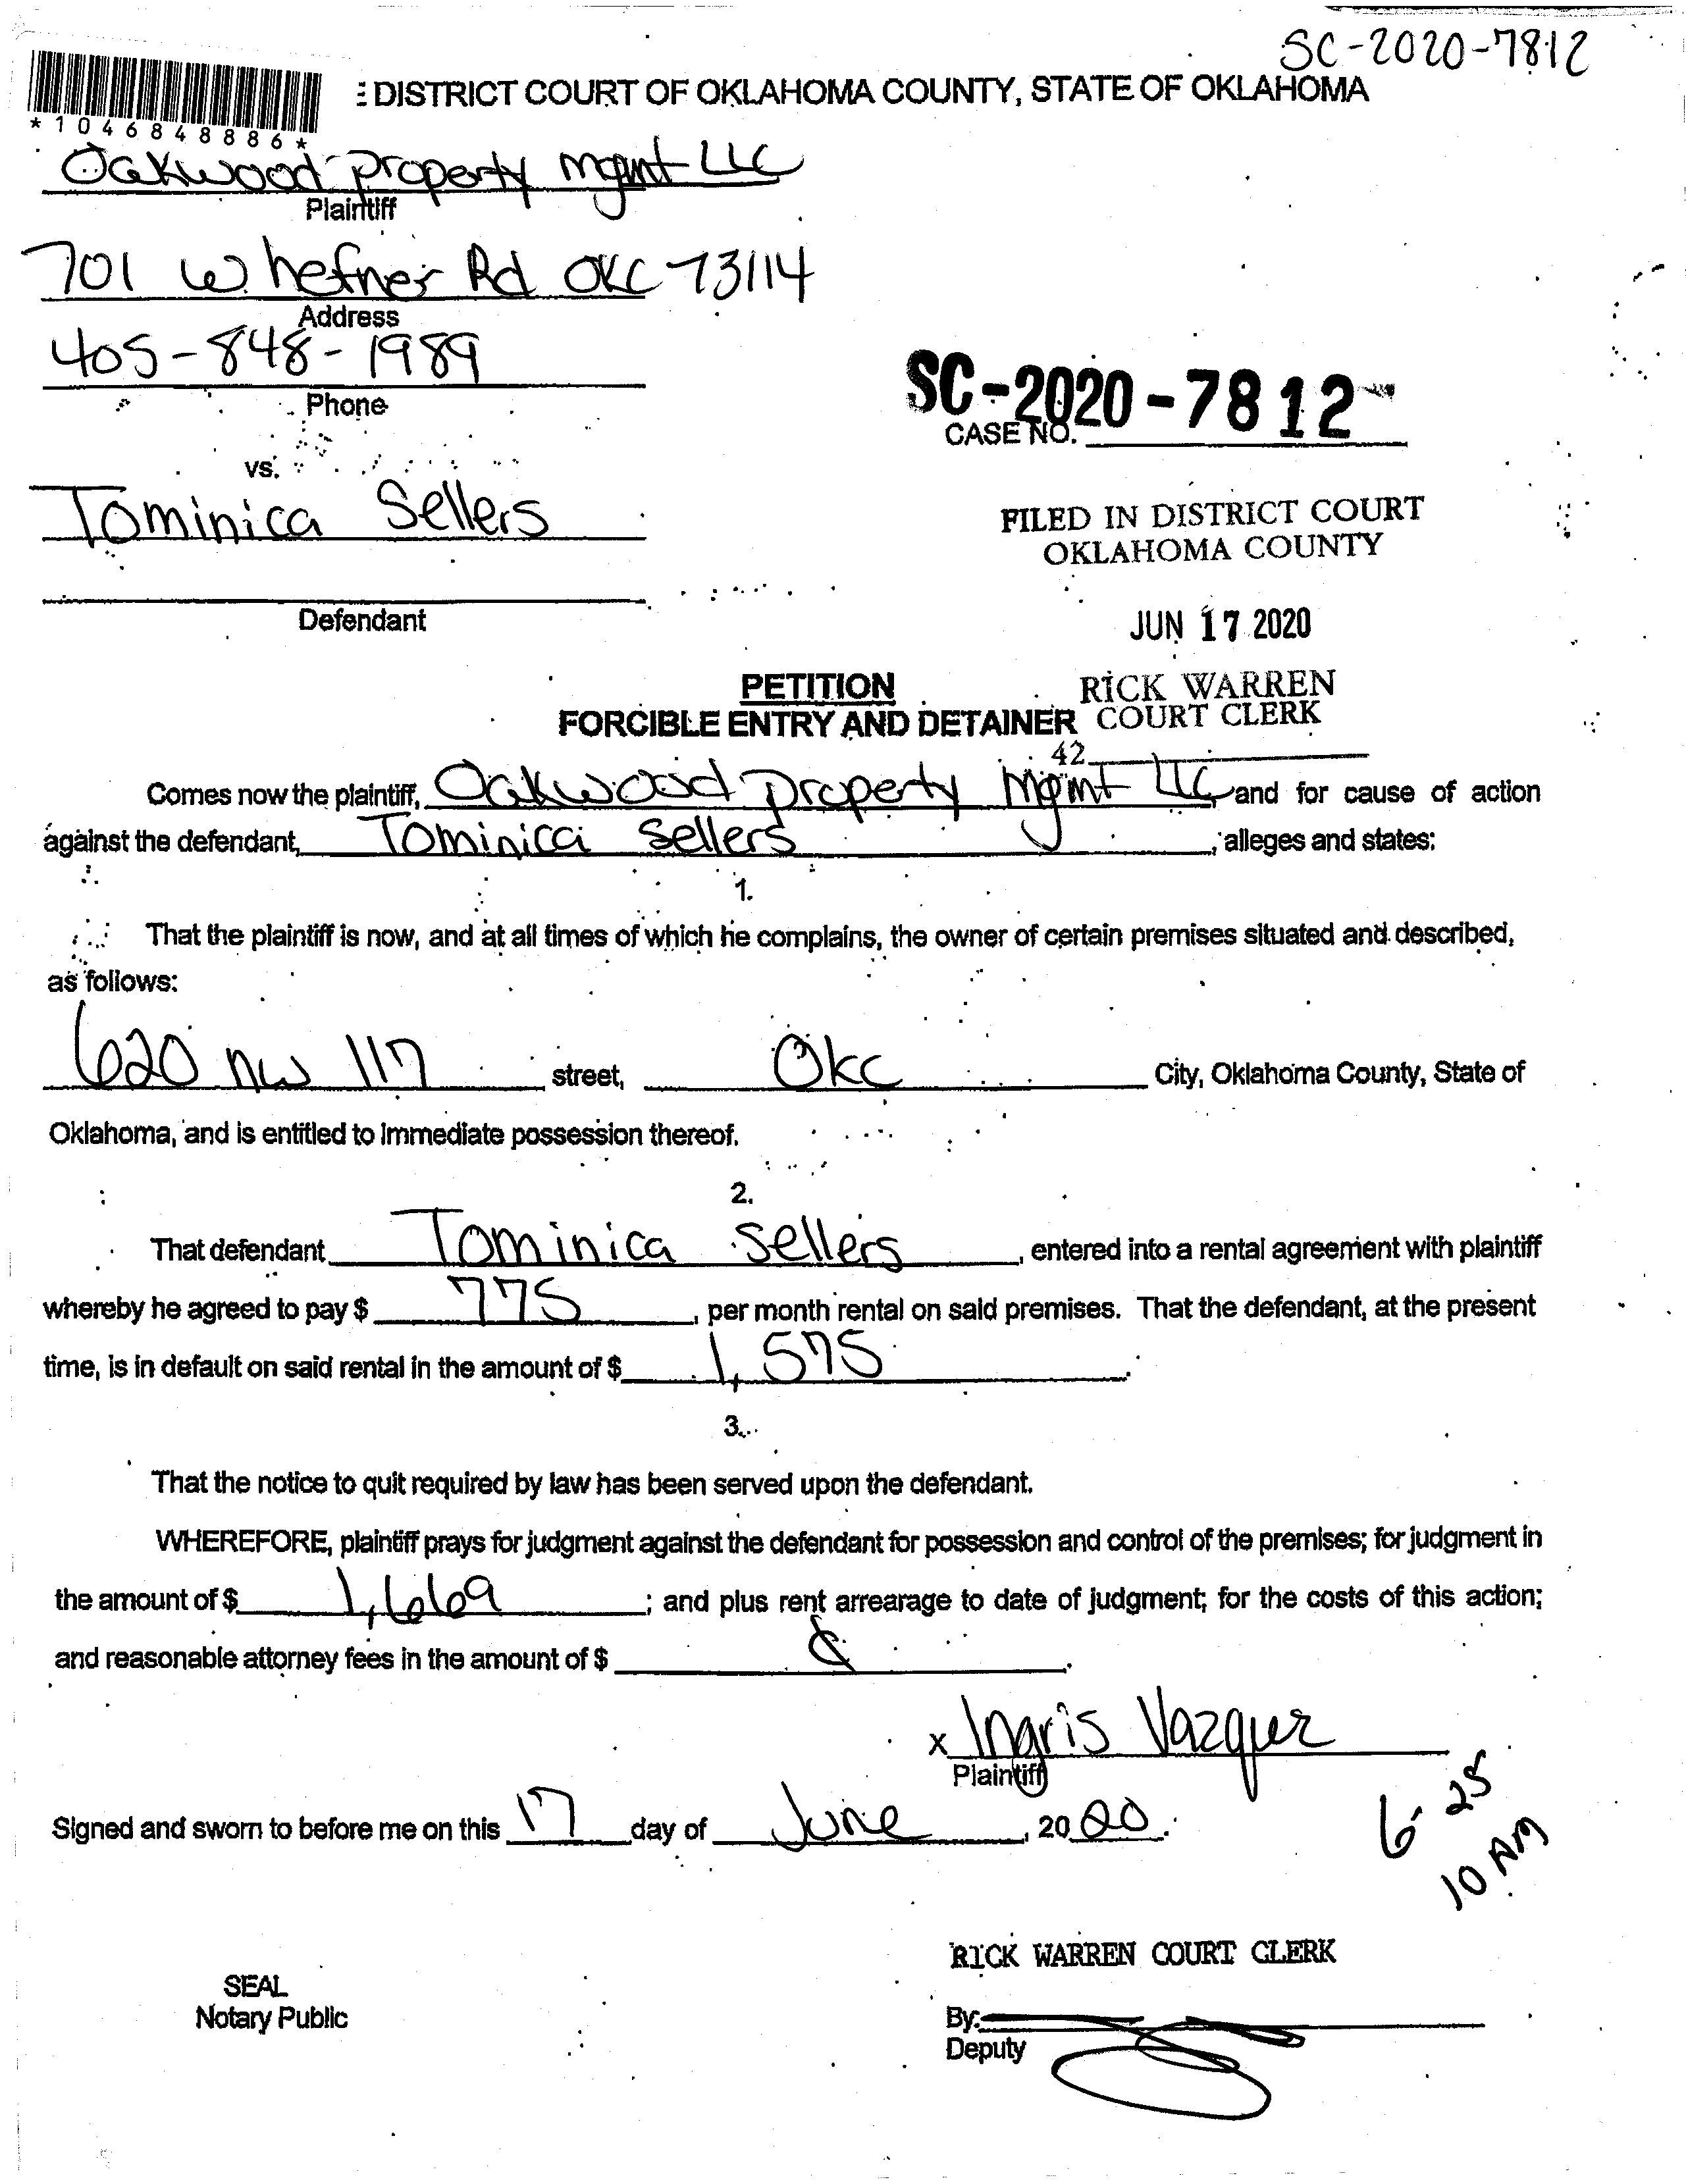 SC-2020-7812
E DISTRICT COURT OF OKLAHOMA COUNTY, STATE OF OKLAHOMA
*1046848886*
Oakwood property mgmt LLC
Plaintiff
701 W hefner Rd OKC 73114
Address
405-848-1989
Phone
SC-2020-7812
CASE NO.
vs.
Tominica Sellers
FILED IN DISTRICT COURT
OKLAHOMA COUNTY
Defendant
JUN 17 2020
PETITION
RICK WARREN
FORCIBLE ENTRY AND DETAINER
COURT CLERK
42
Comes now the plaintiff, Oakwood property Mgmt LLC, and for cause of action
against the defendant, Tominica Sellers, alleges and states:
1.
That the plaintiff is now, and at all times of which he complains, the owner of certain premises situated and described,
as follows:
620 nw 117 street, Okc City, Oklahoma County, State of
Oklahoma, and is entitled to immediate possession thereof.
2.
That defendant Tominica Sellers, entered into a rental agreement with plaintiff
whereby he agreed to pay $ 775, per month rental on said premises. That the defendant, at the present
time, is in default on said rental in the amount of $ 1,575.
3.
That the notice to quit required by law has been served upon the defendant.
WHEREFORE, plaintiff prays for judgment against the defendant for possession and control of the premises; for judgment in
the amount of $ 1,669; and plus rent arrearage to date of judgment; for the costs of this action;
and reasonable attorney fees in the amount of $
x Ingris Vazquez
Plaintiff
Signed and sworn to before me on this 17 day of June, 2020.
6-25
10 AM
RICK WARREN COURT CLERK
SEAL
Notary Public
By:
Deputy